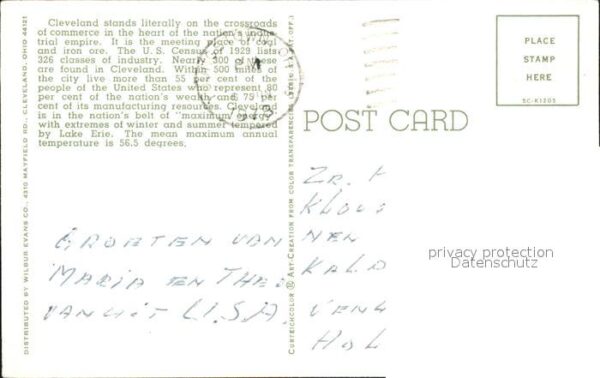 Cleveland stands literally on the crossroads
of commerce in the heart of the nation's indus-
trial empire. It is the meeting place of coal
and iron ore. The U.S. Census of 1929 lists
326 classes of industry. Nearly 300 of these
are found in Cleveland. Within 500 miles of
the city live more than 55 per cent of the
people of the United States who represent 80
per cent of the nation's wealth and 75 per
cent of its manufacturing resources. Cleveland
is in the nation's belt of "maximum energy"
with extremes of winter and summer tempered
by Lake Erie. The mean maximum annual
temperature is 56.5 degrees.
DISTRIBUTED BY WILBUR EVANS CO., 4310 MAYFIELD RD., CLEVELAND, OHIO 44121
CURTEICHCOLOR ® ART-CREATION FROM COLOR TRANSPARENCIES (REG. U.S.A. PAT. OFF.)
POST CARD
PLACE
STAMP
HERE
5C-K1205
GROETEN VAN
MARIA EN THE
VANUIT U.S.A.
ZR.
KLOOS
NEN
KALD
VENL
HOL
privacy protection
Datenschutz